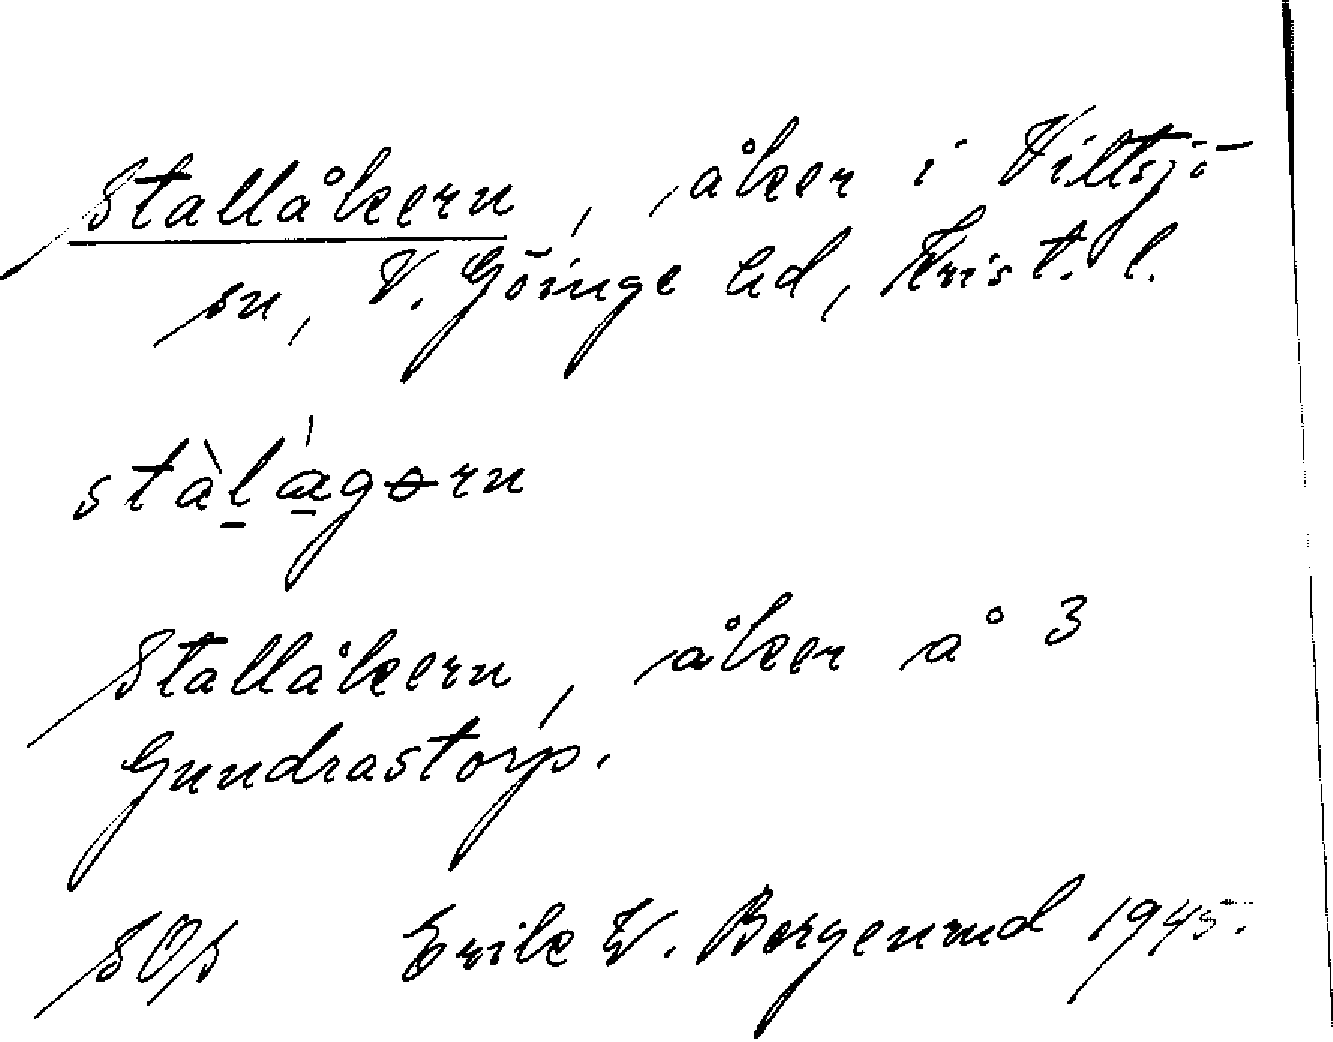 Stallåkern, åker i Vittsjö
sn, V. Göinge hd, Krist. l.
stàl̲a̲̍gɵrn
Stallåkern, åker å 3
Gundrastorp.
SOS Erik W. Bergenrud 1945.